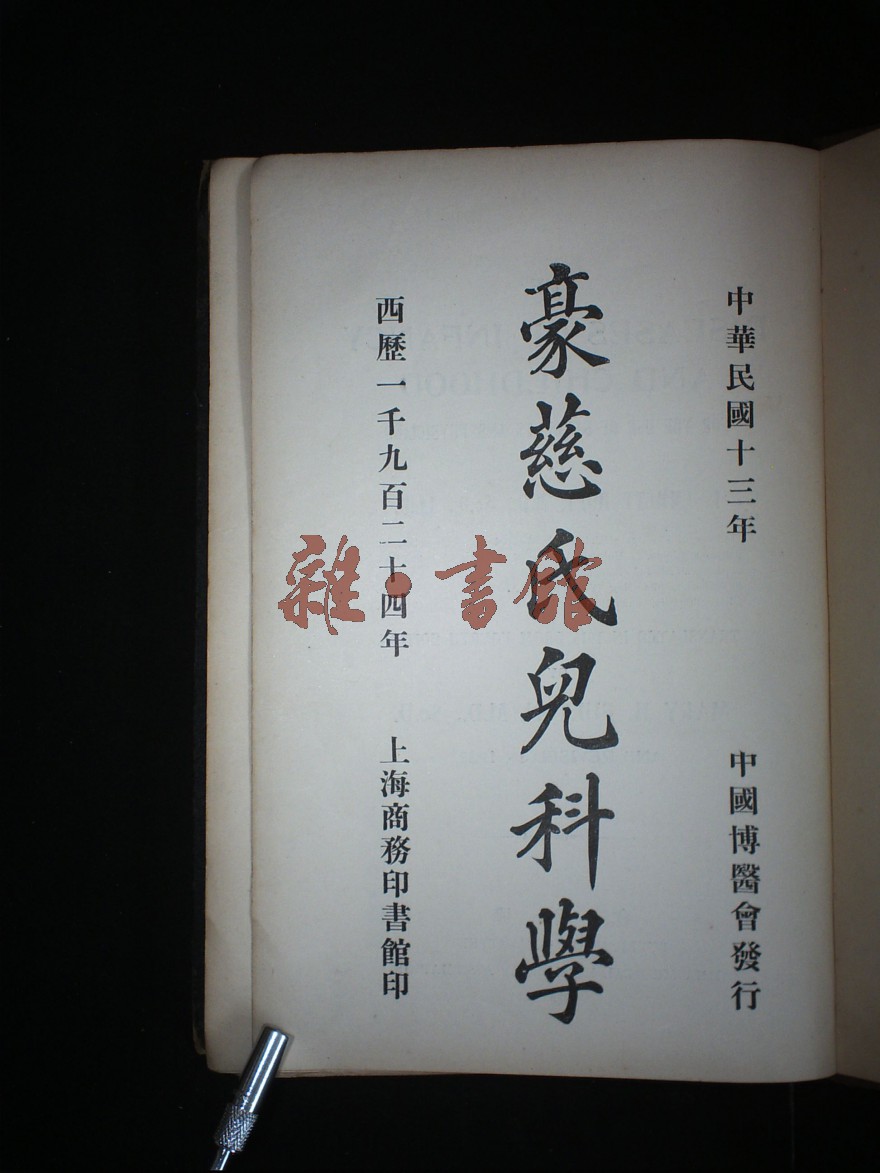 中華民國十三年 中國博醫會發行
豪慈氏兒科學
西歷一千九百二十四年 上海商務印書館印
雜·書館